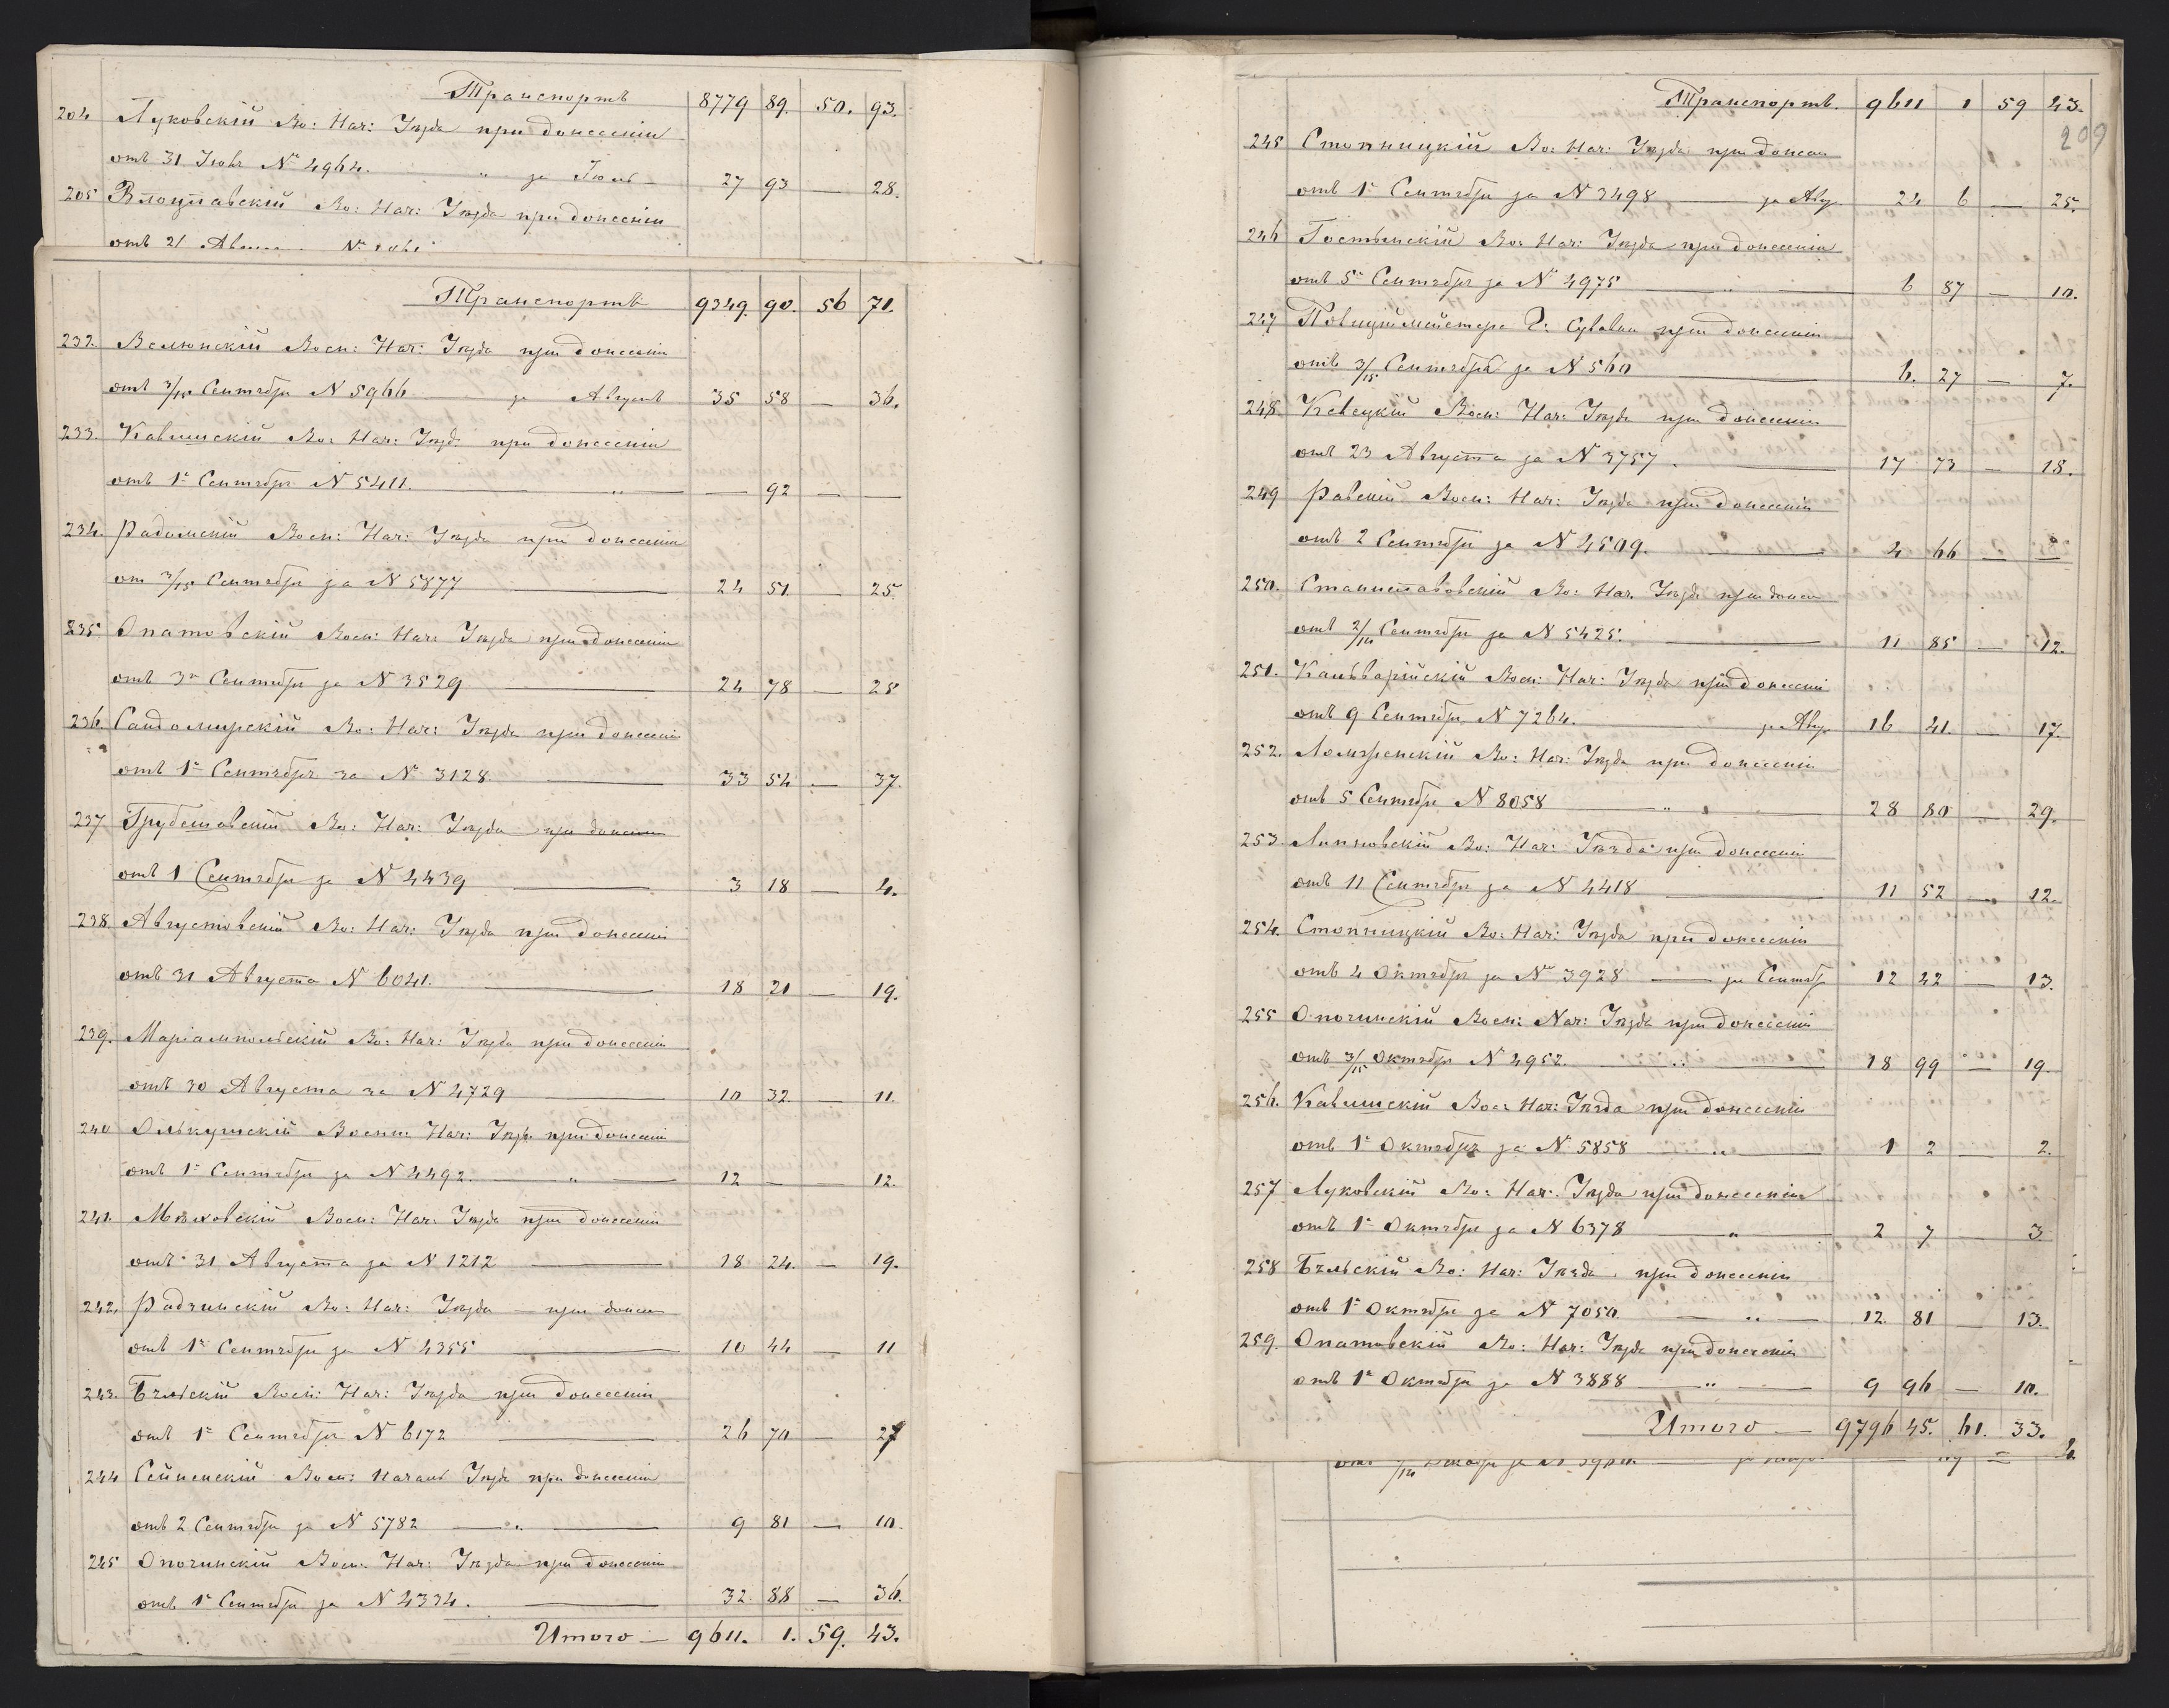 Транспортъ 8779 89. 50. 93.
204 Луковскій Во: Нач: Уѣзда при донесеніи
отъ 31 Іюля № 4964. " за Іюль — 27 93 — 28.
205 Влоцлавскій Во: Нач: Уѣзда при донесеніи
отъ 21 №
Транспортъ 9349. 90. 56 71.
232. Велюнскій Воен: Нач: Уѣзда при донесеніи
отъ 3/15 Сентября № 5966 за Августъ 35 58 — 36.
233. Калишскій Во: Нач: Уѣзд: при донесеніи
отъ 1го Сентября № 5411. — " — — 92 — —
234. Радомскій Воен: Нач: Уѣзда при донесеніи
от 3/15 Сентября за № 5877 — 24 51. — 25.
235. Опатовскій Воен: Нач: Уѣзда при донесеніи
отъ 3го Сентября за № 3529 — 24 78 — 28
236. Сандомирскій Во: Нач: Уѣзда при донесеніи
отъ 1го Сентября за № 3128. — 33 54 — 37.
237 Грубешовскій Во: Нач: Уѣзда при донесеніи
отъ 1 Сентября за № 4439 — 3 18 — 4.
238. Августовскій Во: Нач: Уѣзда при донесеніи
отъ 31 Августа № 6041. — 18 21 — 19.
239. Маріампольскій Во: Нач: Уѣзда при донесеніи
отъ 30 Августа за № 4729 — 10 32. — 11.
240 Олькушскій Военн: Нач: Уѣзд: при донесеніи
отъ 1го Сентября за № 4492. — " — 12 — — 12.
241. Мѣховскій Воен: Нач: Уѣзда при донесеніи
отъ 31 Августа за № 1212 — 18 24. — 19.
242. Радзинскій Во: Нач: Уѣзда — при донесен
отъ 1го Сентября за № 4355 — 10 44 — 11
243. Бѣльскій Воен: Нач: Уѣзда при донесеніи
отъ 1го Сентября № 6172 — 26 70 — 27
244 Сейненскій Воен: Началь Уѣзда при донесеніи
отъ 2 Сентября за № 5782 — " — 9 81 — 10.
245 Опочинскій Воен: Нач: Уѣзда при донесеніи
отъ 1го Сентября за № 4334. — 32. 88 — 36.
Итого — 9611. 1. 59. 43.
Транспортъ. 9611 1 59 43.
209
245 Стопницкій Во: Нач: Уѣзда при донесен
отъ 1го Сентября за № 3498 — за Авг 24 6 — 25.
246 Гостынскій Во: Нач: Уѣзда при донесеніи
отъ 5го Сентября за № 4975 — " — 6 87 — 10.
247 Полицій мейстера Г: Сувалки при донесеніи
отъ 3/15 Сентября за № 560 — 6. 27 — 7.
248. Кѣлецкій Воен: Нач: Уѣзда при донесеніи
отъ 23 Августа за № 3757. — 17 73 — 18.
249 Равскій Воен: Нач: Уѣзда при донесеніи
отъ 2 Сентября за № 4509. — 4 66 —
250. Станиславовскій Во: Нач. Уѣзда при донесе
отъ 2/14 Сентября за № 5425. — 11 85 — 12.
251. Кальварійскій Воен: Нач: Уѣзда при донесеніи
отъ 9 Сентября № 7264. — за Авг 16 41. — 17.
252. Ломжинскій Во: Нач: Уѣзда при донесеніи
отъ 5 Сентября № 8058 — " — 28 80 — 29.
253. Липновскій Во: Нач: Уѣзда при донесеніи
отъ 11 Сентября за № 4418 — 11 52 — 12.
254. Стопницкій Во: Нач: Уѣзда при донесеніи
отъ 4 Октября за № 3928 — за Сентяб 12 42 — 13.
255 Опочинскій Воен: Нач: Уѣзда при донесеніи
отъ 3/15 Октября № 4952. — " — 18 99 — 19.
256. Калишскій Вое: Нач: Уѣзда при донесеніи
отъ 1го Октября за № 5858 — " — 1 2 — 2.
257 Луковскій Во: Нач: Уѣзда при донесеніи
отъ 1го Октября за № 6378 — " — 2 7 — 3
258 Бѣльскій Во: Нач: Уѣзда при донесеніи
отъ 1го Октября за № 7050. — " — 12. 81 — 13.
259. Опатовскій Во: Нач: Уѣзда при донесеніи
отъ 1го Октября за № 3888 — " — 9 96 — 10.
Итого — 9796 45. 61. 33.